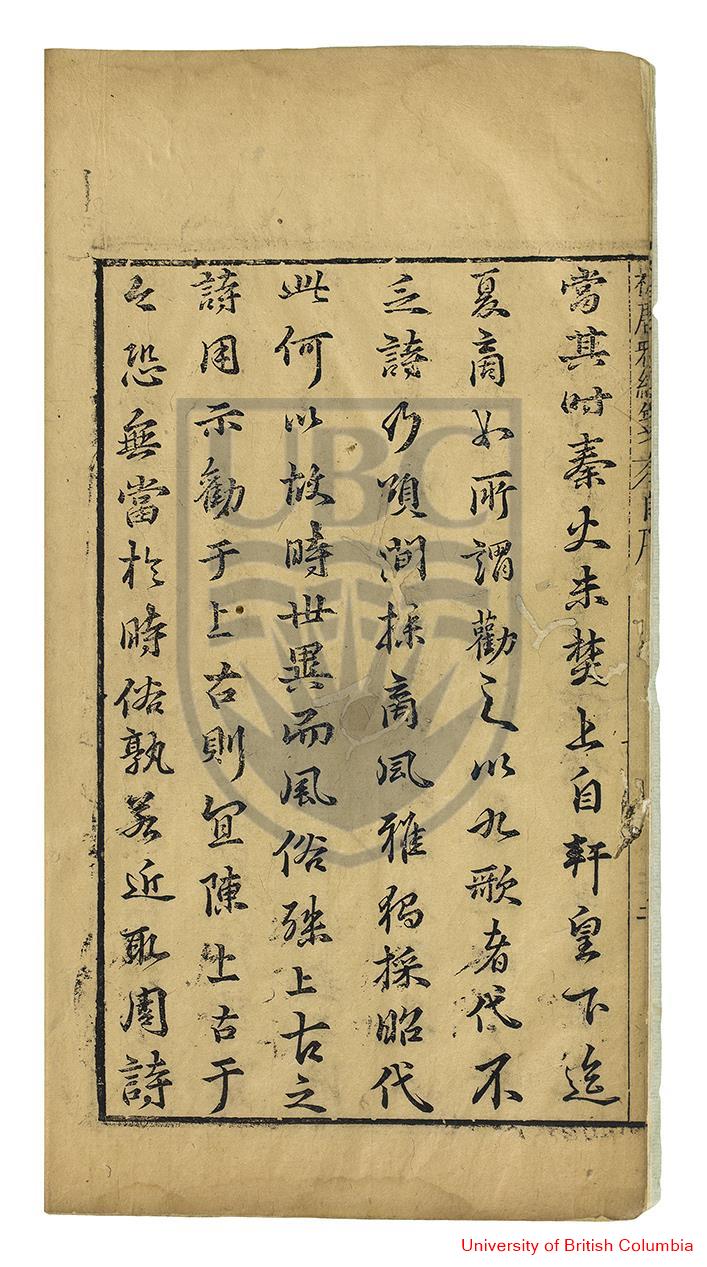 當其時秦火未焚上自軒皇下迄
夏商如所謂勸之以九歌者代不
乏詩乃頌間採商風雅獨採昭代
此何以故時世異而風俗殊上古之
詩用示勸于上古則宜陳上古于
今恐無當於時俗孰若近取周詩
UBC
University of British Columbia